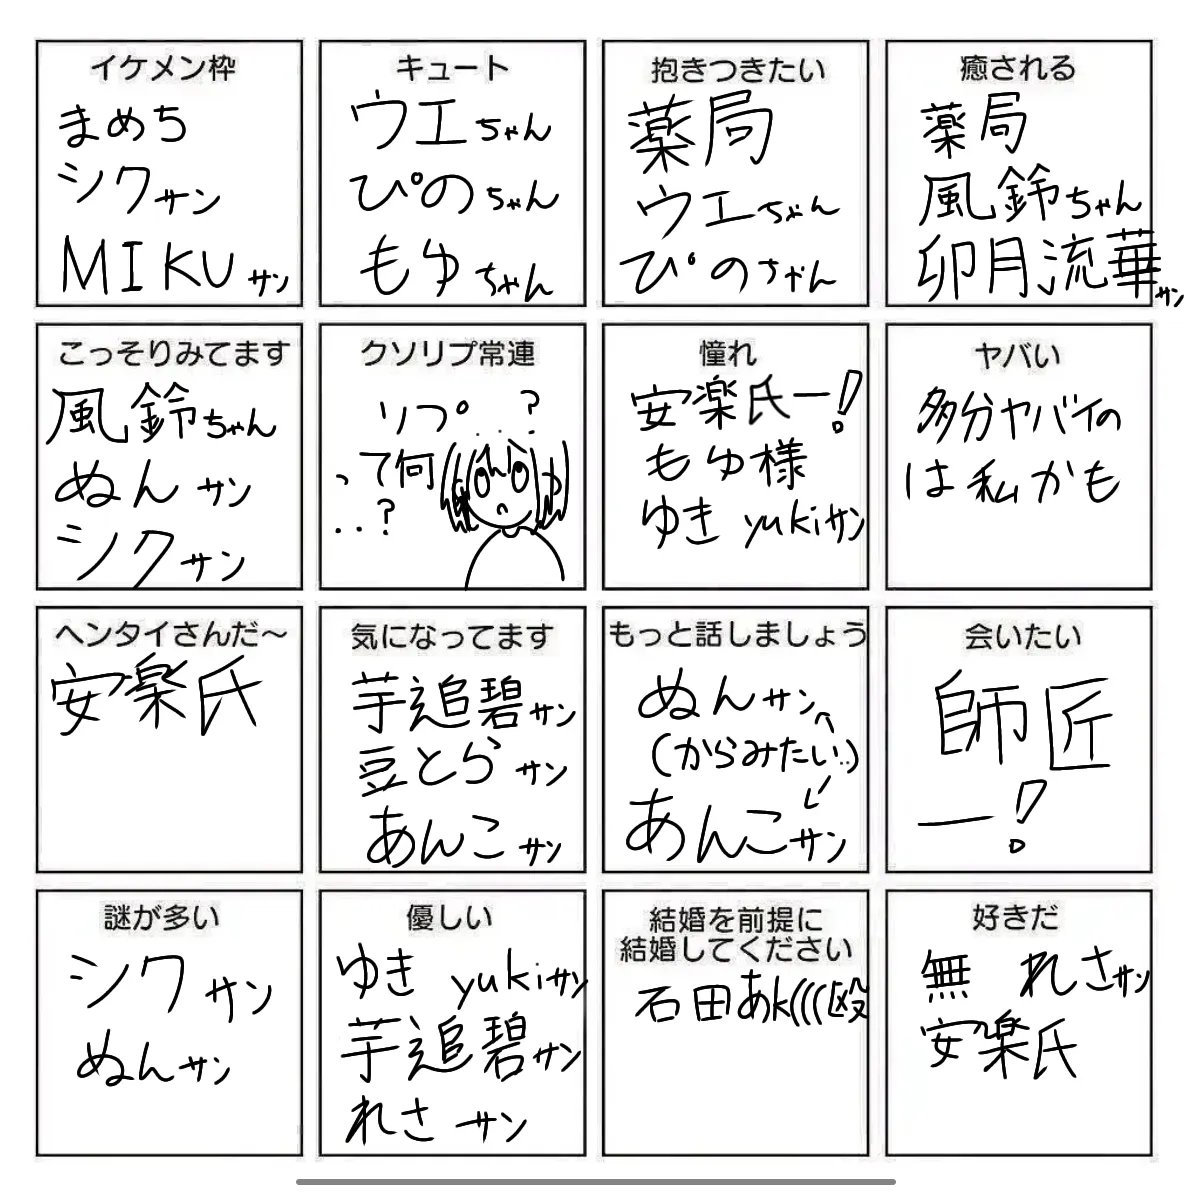 イケメン枠
まめち
シクサン
MIKUサン
キュート
ウエちゃん
ぴのちゃん
もゆちゃん
抱きつきたい
薬局
ウエちゃん
ぴのちゃん
癒される
薬局
風鈴ちゃん
卯月流華サン
こっそりみてます
風鈴ちゃん
ぬんサン
シクサン
クソリプ常連
リプ。...?
って何
...?
憧れ
安楽氏ー!
もゆ様
ゆき yukiサン
ヤバい
多分ヤバイの
は私かも
ヘンタイさんだ～
安楽氏
気になってます
芋追碧サン
豆とらサン
あんこサン
もっと話しましょう
ぬんサン
(からみたい..)
あんこサン
会いたい
師匠
ー!
謎が多い
シクサン
ぬんサン
優しい
ゆき yukiサン
芋追碧サン
れさ サン
結婚を前提に
結婚してください
石田あk(((殴
好きだ
無 れささン
安楽氏